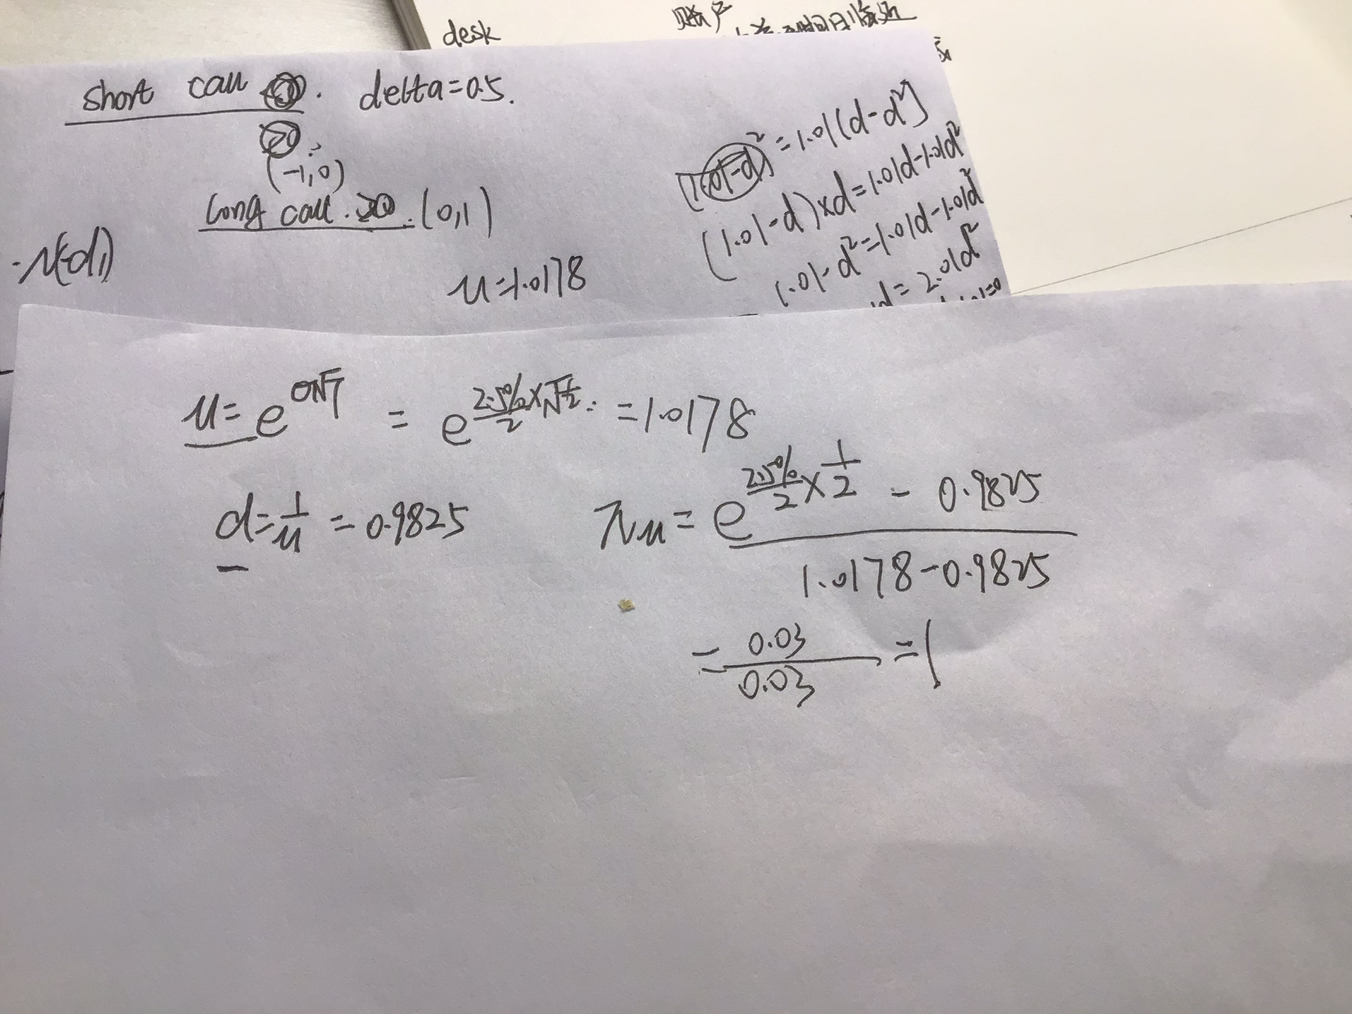 desk
账户
short call . delta=0.5.
(-1,0)
long call. (0,1)
-N(d1)
u=1.0178
(1.01-d)²=1.01(d-d²)
(1.01-d)×d=1.01d-1.01d²
1.01-d²=1.01d-1.01d²
d=2.01d²
u=e^{σ√T} = e^{2.5%/2×√1/2} =1.0178
d=1/u=0.9825
πu= (e^{2.5%/2×1/2} - 0.9825)/(1.0178-0.9825)
=0.03/0.03=1